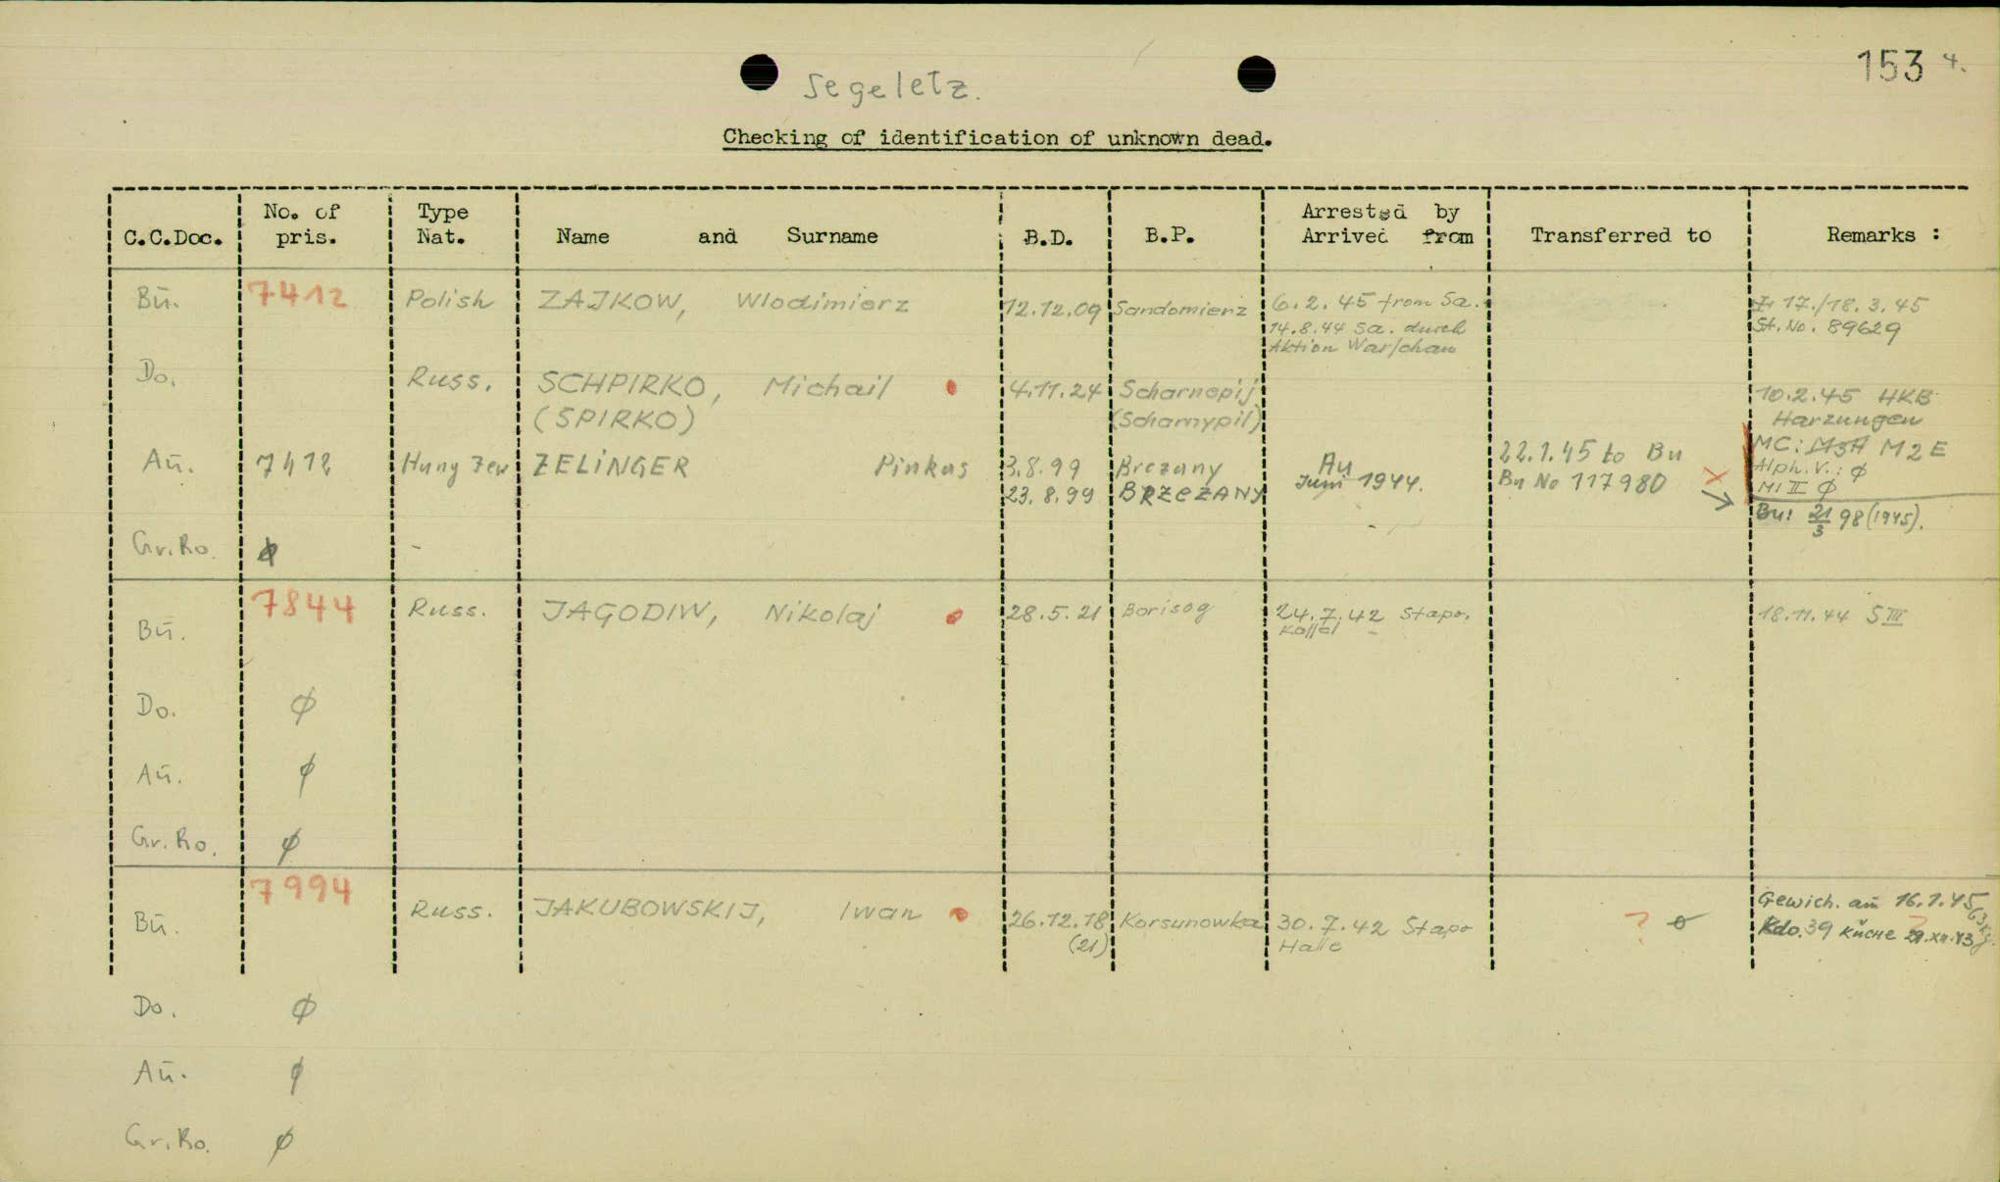 153 4.
Segeletz.
Checking of identification of unknown dead.
C.C.Doc. No. of pris. Type Nat. Name and Surname B.D. B.P. Arrested by Arrived from Transferred to Remarks :
Bü. 7412 Polish ZAJKOW, Wlodimierz 12.12.09 Sandomierz 6.2.45 from Sa. 17./18.3.45
14.8.44 Sa. durch St. No. 89629
Aktion Warschau
Do. Russ. SCHPIRKO, Michail 4.11.24 Scharnepij 10.2.45 HKB
(SPIRKO) (Scharnypil) Harzungen
Aü. 7412 Hung Jew ZELiNGER Pinkus 3.8.99 Brezany Au 22.1.45 to Bu MC: M2E
23.8.99 BRZEZANY Juni 1944. Bu No 117980 X Alph. V.: ϕ
MI II ϕ
Bu: 21/3 98 (1945).
Gr.Ro. ϕ -
Bü. 7844 Russ. JAGODIW, Nikolaj 28.5.21 Borisog 24.7.42 Stapo. 18.11.44 S III
Kassel
Do. ϕ
Aü. ϕ
Gr.Ro. ϕ
Bü. 7994 Russ. JAKUBOWSKIJ, Iwan 26.12.18 Korsunowka 30.7.42 Stapo ? Gewich. am 16.1.45 63kg.
(21) Halle Kdo. 39 Küche
Do. ϕ
Aü. ϕ
Gr.Ro. ϕ